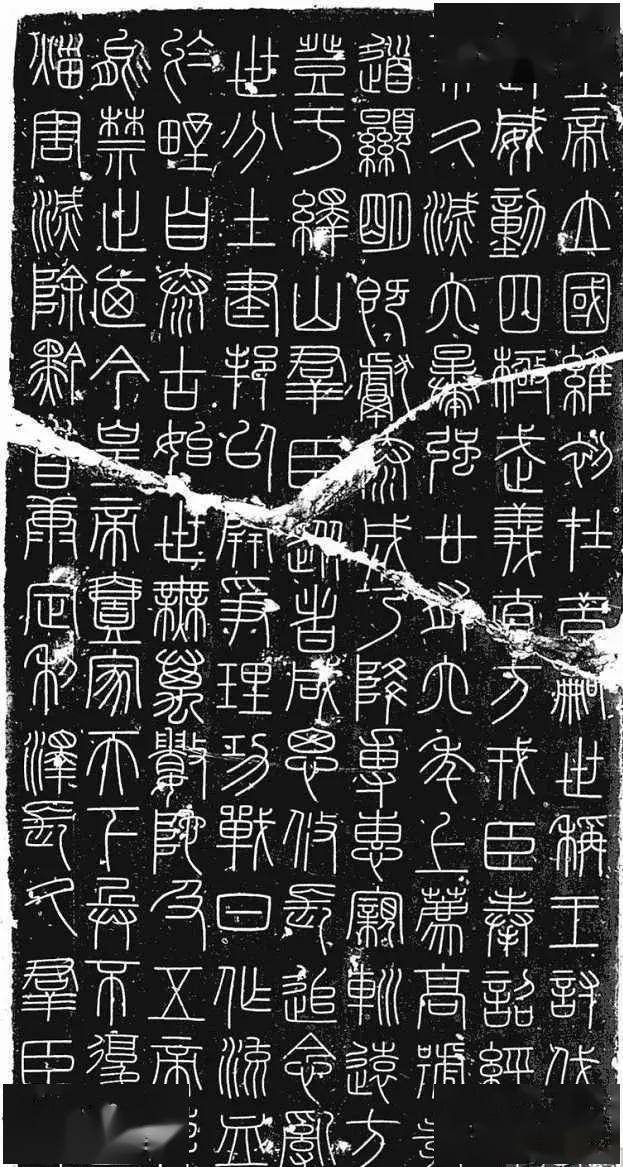 帝立國維初在昔嗣世稱王討伐
威動四極武義直方戎臣奉詔經
不久滅六暴強廿有六年上薦高號
道顯明既獻泰成乃降專惠親巡遠方
登于繹山群臣從者咸思攸長追念亂
世分土建邦以開爭理功戰日作流血
於野自泰古始世無萬數陀及五帝
能禁止廼今皇帝壹家天下兵不復
災害滅除黔首康定利澤長久群臣